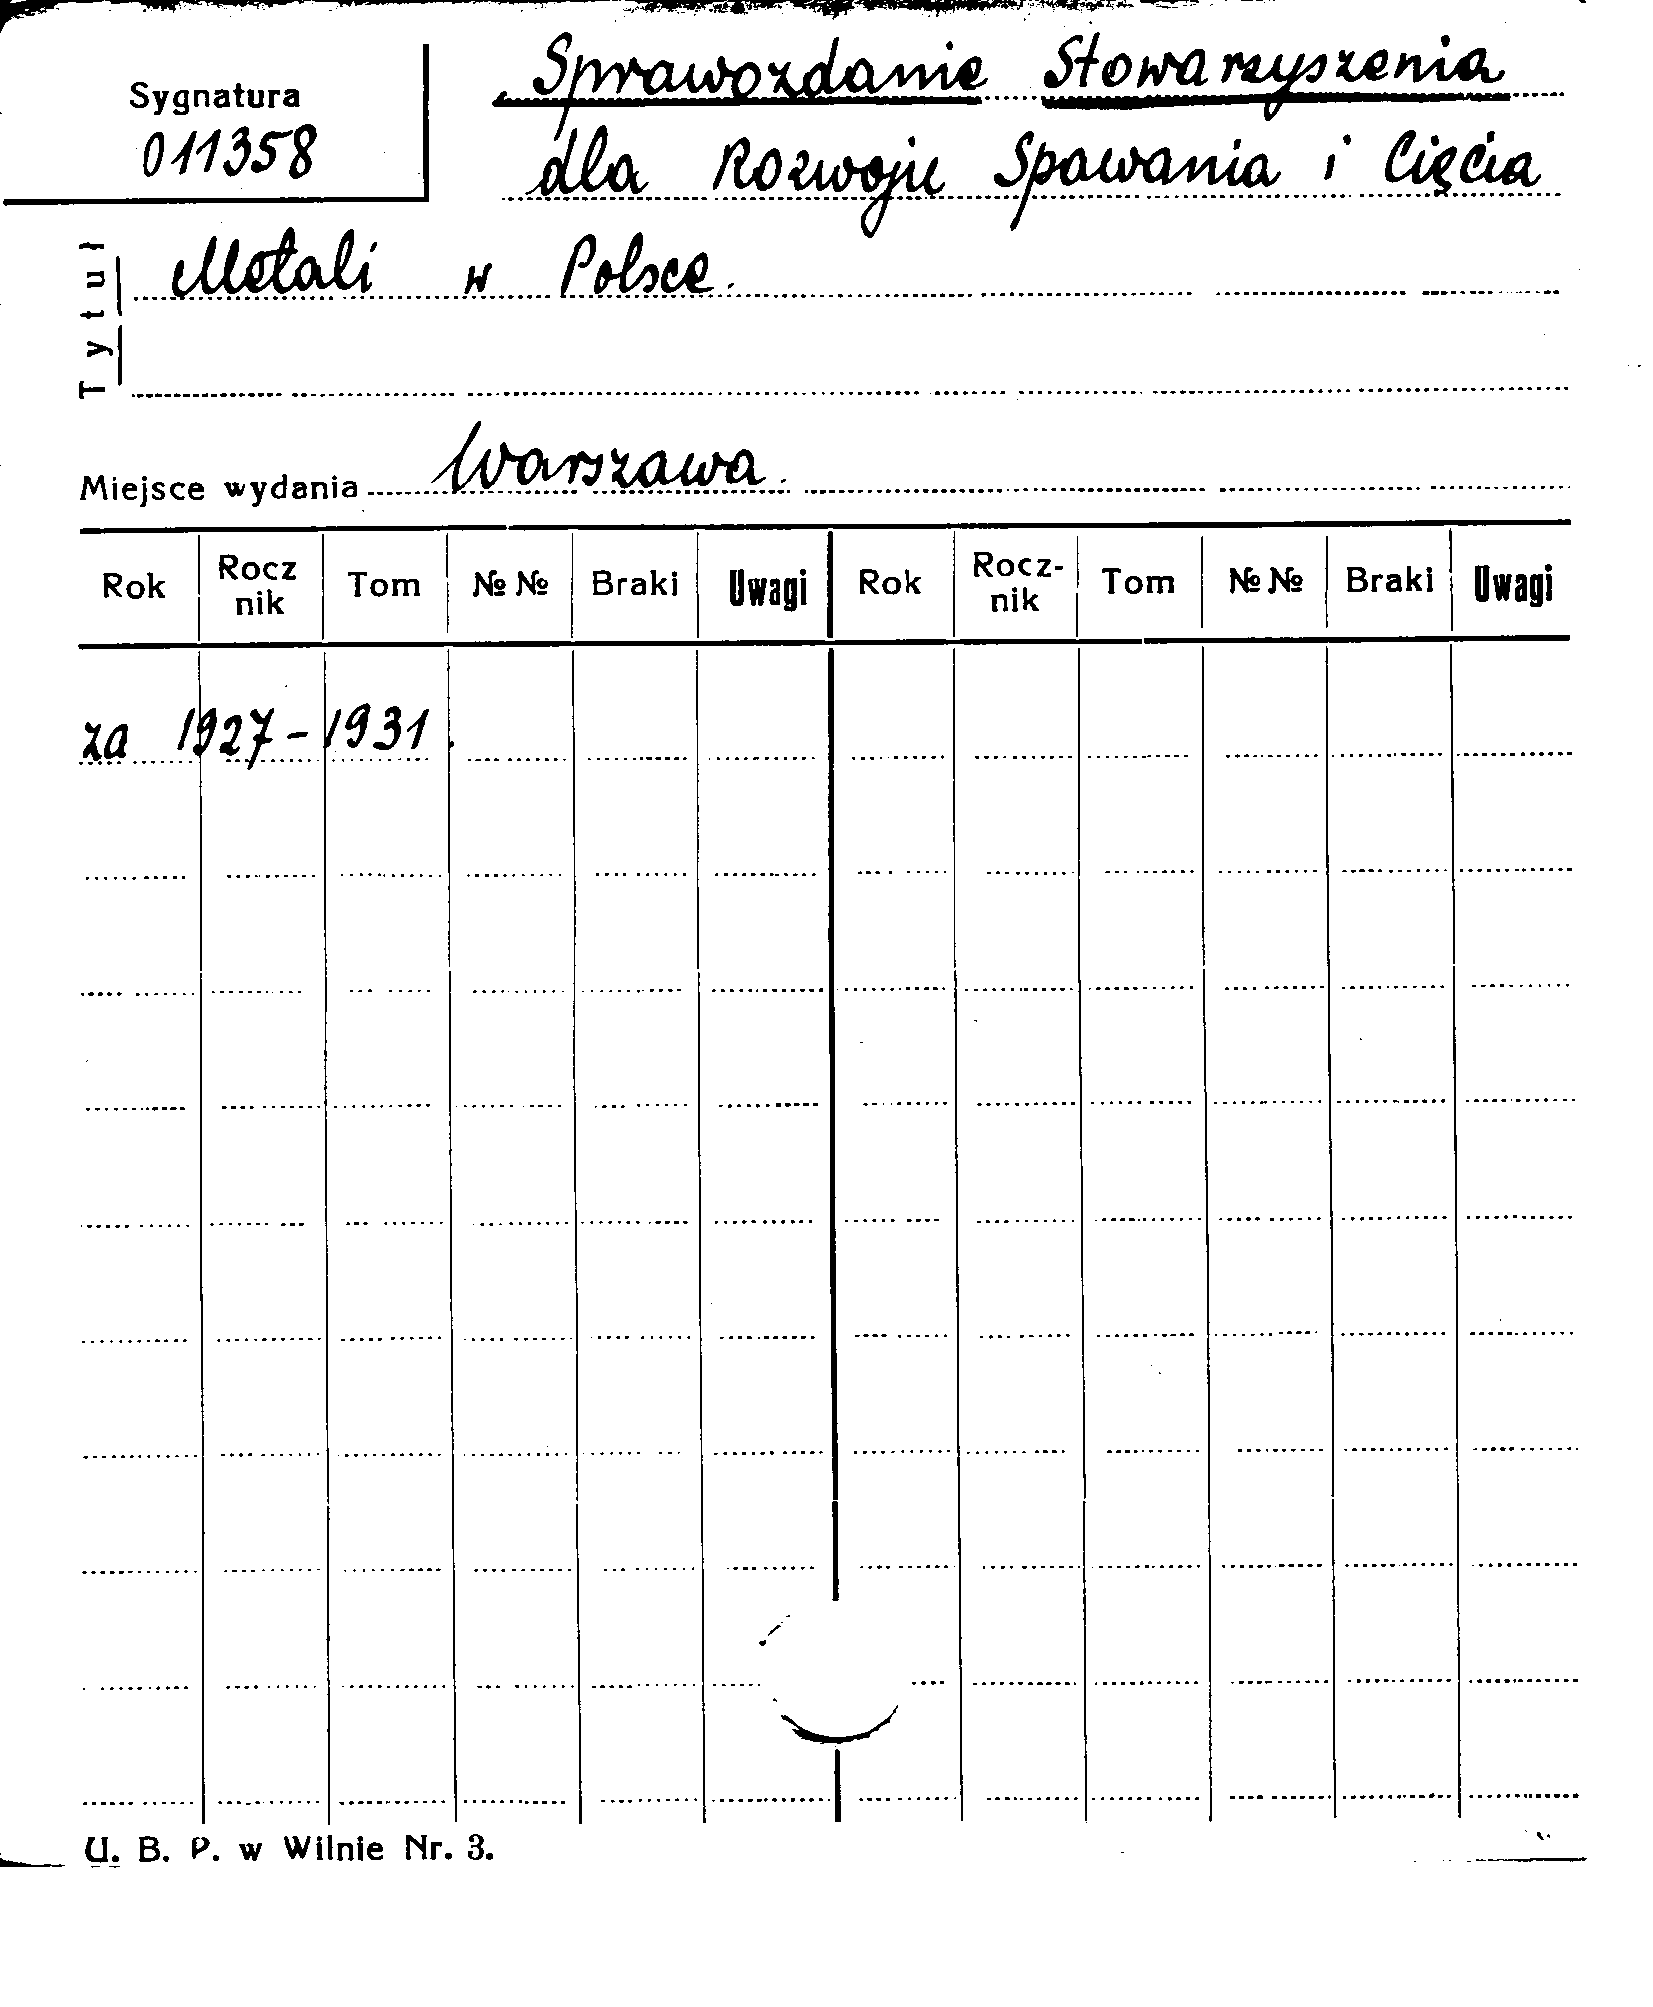 Sygnatura
011358
Sprawozdanie Stowarzyszenia
dla Rozwoju Spawania i Cięcia
Tytuł
Metali w Polsce.
Miejsce wydania Warszawa.
Rok Rocz nik Tom №№ Braki Uwagi Rok Rocz- nik Tom №№ Braki Uwagi
za 1927-1931.
U. B. P. w Wilnie Nr. 3.